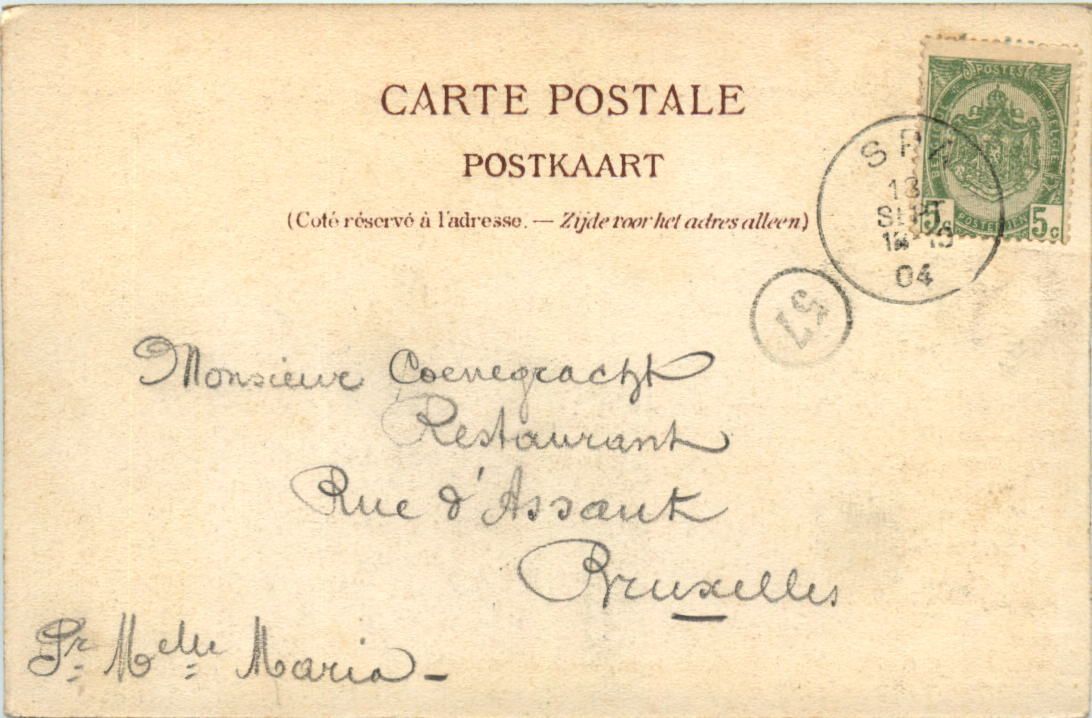 CARTE POSTALE
POSTKAART
(Coté réservé à l'adresse. — Zijde voor het adres alleen)
POSTES
5c 5c
SPA
13
SEPT
04
57
Monsieur Coenegracht
Restaurant
Rue d'Assaut
Bruxelles
Pr Melle Maria –